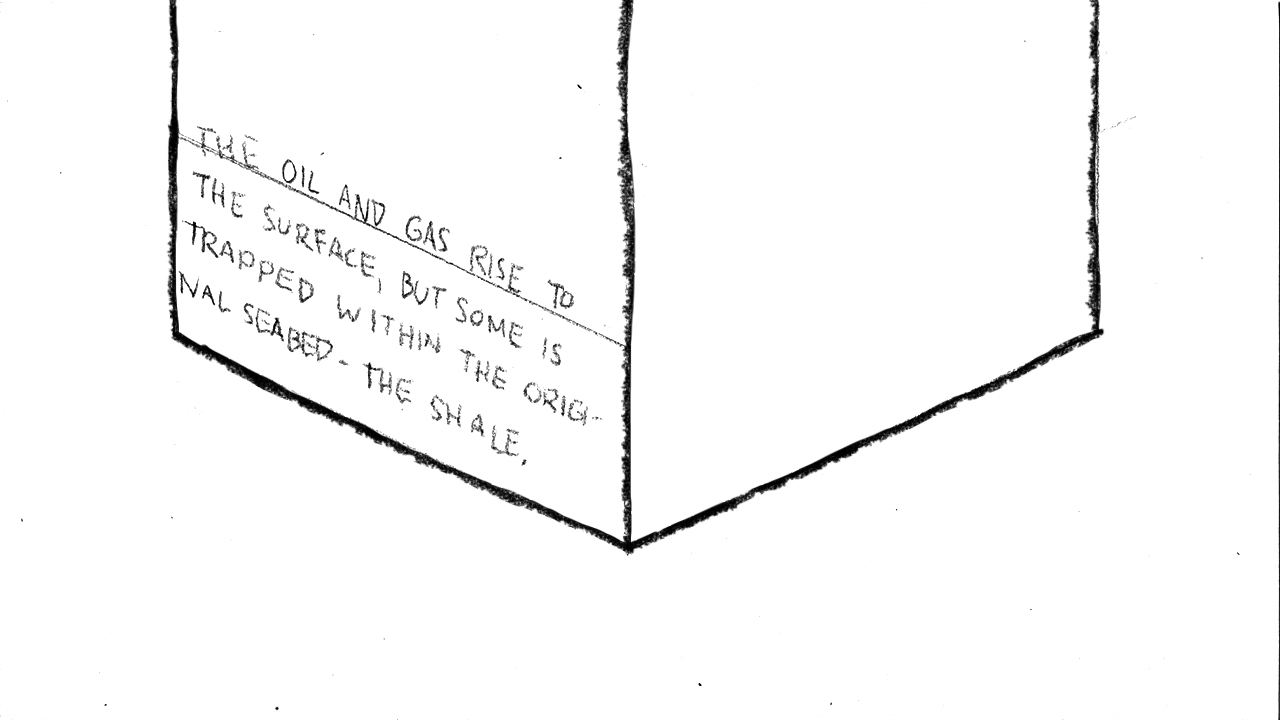 THE OIL AND GAS RISE TO
THE SURFACE, BUT SOME IS
TRAPPED WITHIN THE ORIGI-
NAL SEABED - THE SHALE.